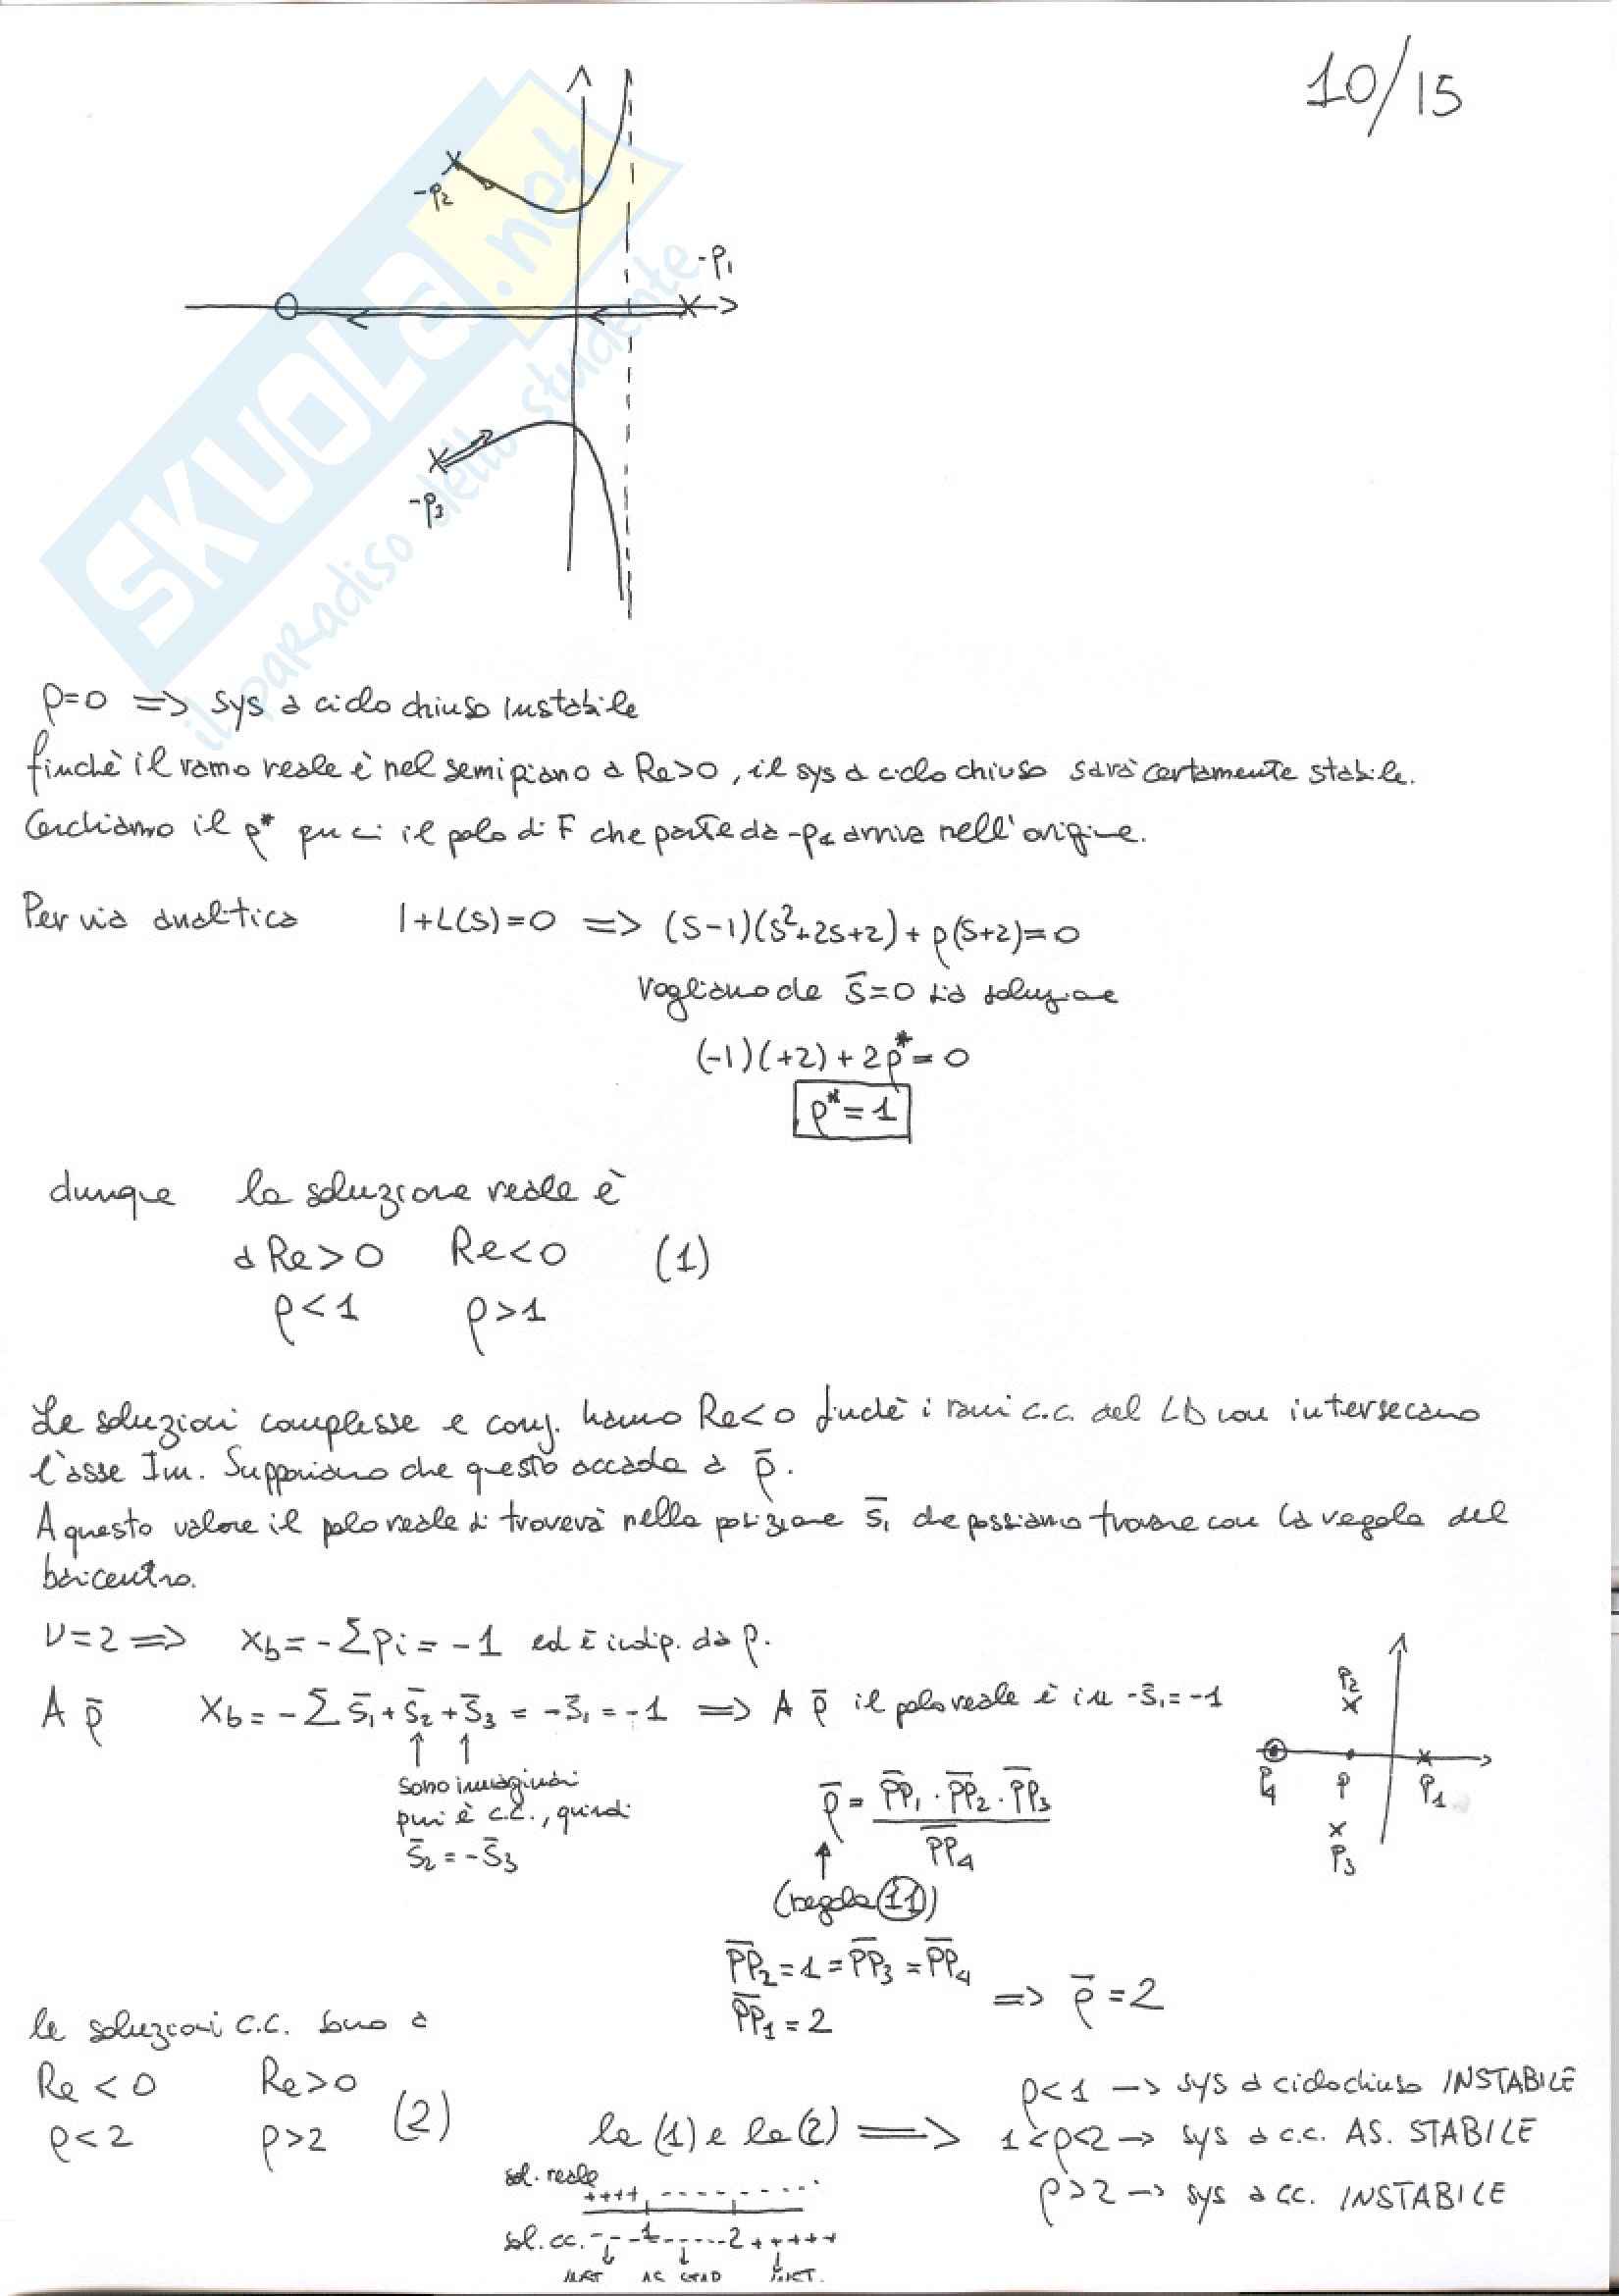 10/15
SKUOLA.net
il paradiso dello studente
-p₂
-p₁
-p₃
ρ=0 => sys a ciclo chiuso instabile
finchè il ramo reale è nel semipiano a Re>0, il sys a ciclo chiuso sarà certamente stabile.
Cerchiamo il ρ* per ci il polo di F che parte da -p₁ arriva nell'origine.
Per via analitica 1+L(s)=0 => (s-1)(s²+2s+2)+ρ(s+2)=0
Vogliamo che s̄=0 sia soluzione
(-1)(+2)+2ρ*=0
ρ*=1
dunque la soluzione reale è
a Re>0 Re<0 (1)
ρ<1 ρ>1
Le soluzioni complesse e conj. hanno Re<0 finchè i rami c.c. del LD non intersecano
l'asse Im. Supponiamo che questo accada a ρ̄.
A questo valore il polo reale si troverà nella posizione s̄₁ che possiamo trovare con la regola del
baricentro.
ν=2 => x_b=-Σpi=-1 ed è indip. da ρ.
A ρ̄ x_b=-Σ s̄₁+s̄₂+s̄₃=-s̄₁=-1 => A ρ̄ il polo reale è in -s̄₁=-1
↑ ↑
sono imaginari
pui è c.c., quindi
s̄₂=-s̄₃
ρ̄ = P̅P̅₁·P̅P̅₂·P̅P̅₃ / P̅P̅₄
(regola 11)
P₂
P₄ P P₁
P₃
P̅P̅₂=1=P̅P̅₃=P̅P̅₄
P̅P̅₁=2
=> ρ̄=2
le soluzioni c.c. sono a
Re<0 Re>0
ρ<2 ρ>2 (2)
la (1) e la (2) =>
ρ<1 -> sys a ciclo chiuso INSTABILE
1<ρ<2 -> sys a c.c. AS. STABILE
ρ>2 -> sys a cc. INSTABILE
sol. reale
++++ - - - - - - - -
sol. cc. - - - 1 - - - - - 2 + + + + + +